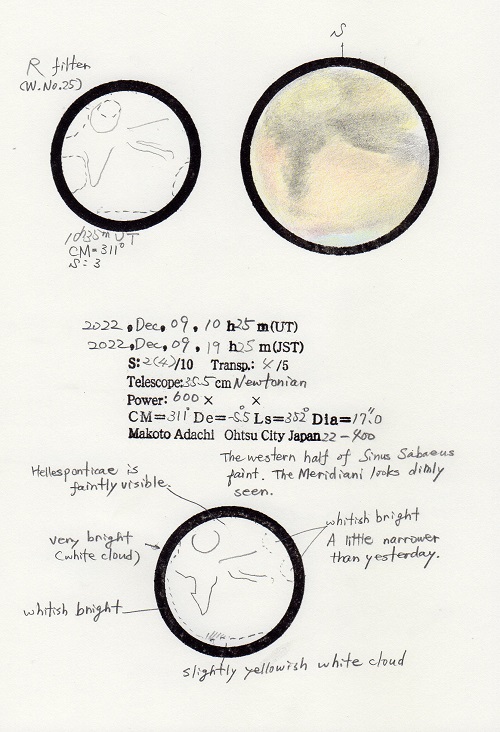 S
R filter
(W.No.25)
10h35m UT
CM=311°
S:3
2022, Dec, 09, 10 h25 m(UT)
2022, Dec, 09, 19 h25 m(JST)
S:2(4)/10 Transp.: 4/5
Telescope:35.5 cm Newtonian
Power: 600 × ×
CM=311° De=-5.5° Ls=352° Dia=17".0
Makoto Adachi Ohtsu City Japan 22-400
The western half of Sinus Sabaeus
faint. The Meridiani looks dimly
seen.
Hellesponticae is
faintly visible.
very bright
(white cloud)
whitish bright
whitish bright
A little narrower
than yesterday.
slightly yellowish white cloud